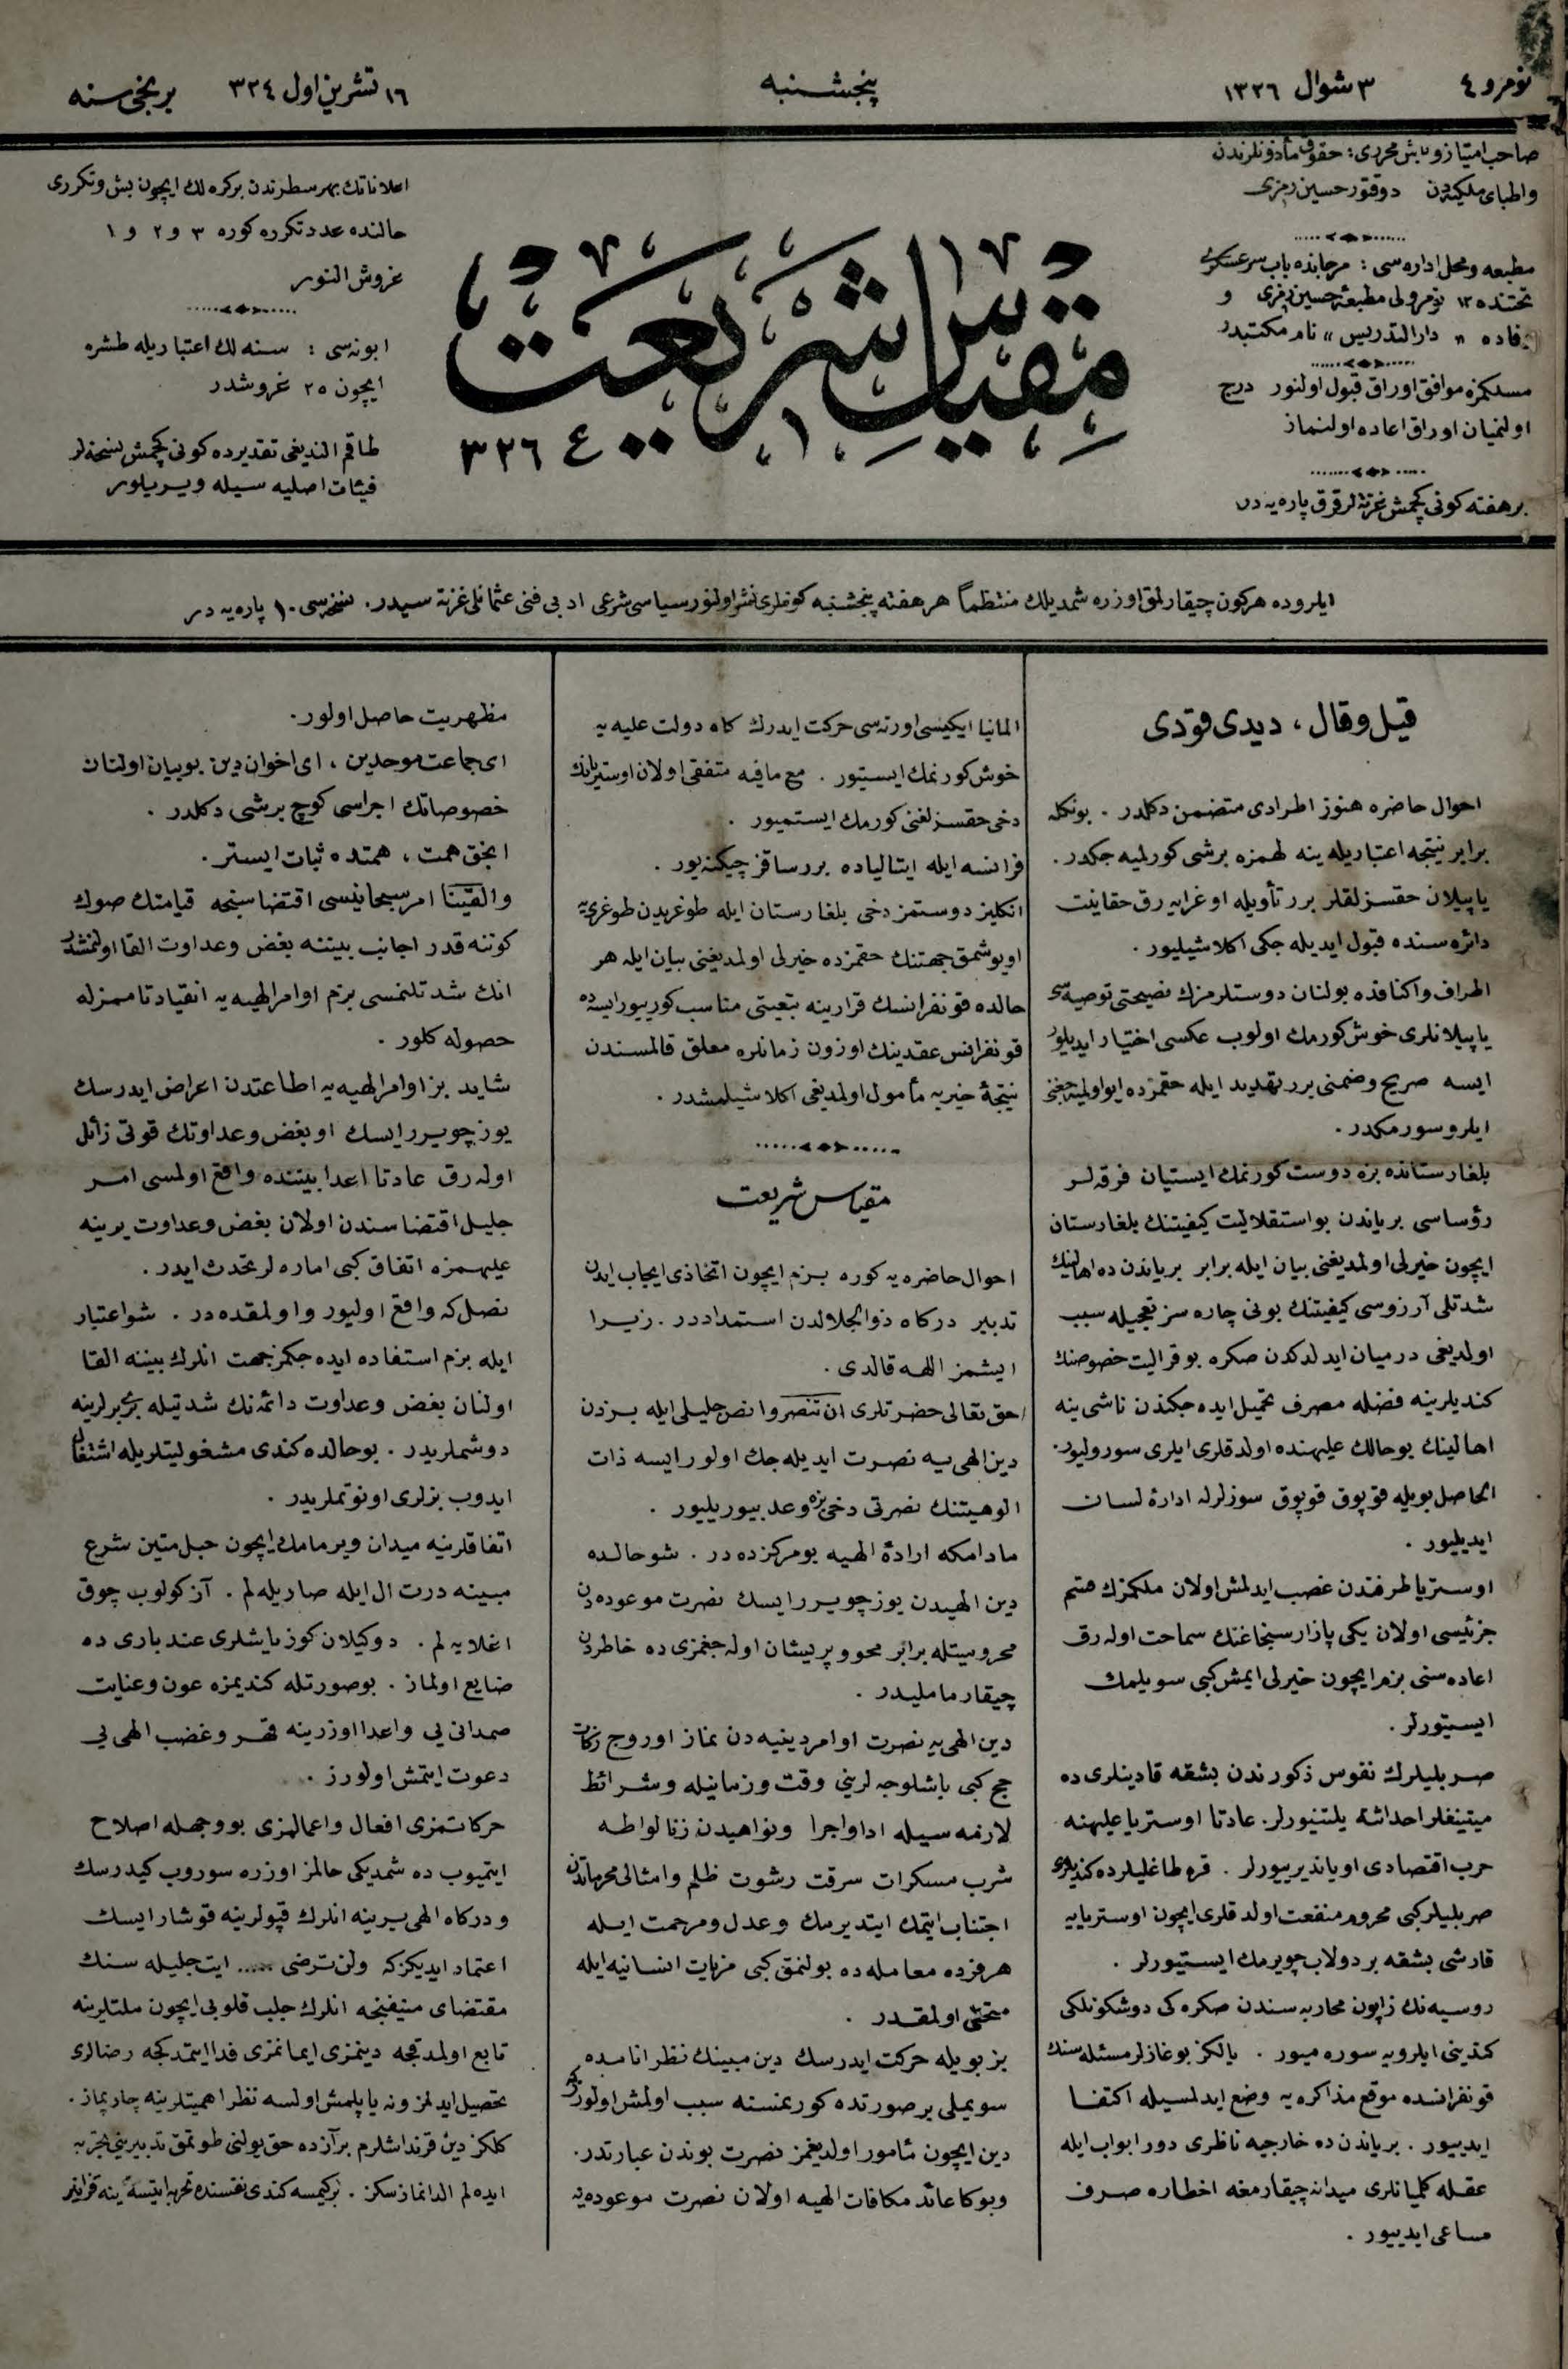 نومرو ٤
٣ شوال ١٣٢٦
پنجشنبه
١٦ تشرین اول ٣٢٤
برنجی سنه
صاحب امتیاز و باش محرری : حقوق مأذونلرندن
واطبای ملکیه‌دن دوقتور حسین رمزی
مطبعه ومحل اداره‌سی : مرجانده باب سرعسکری
تحتنده ١٣ نومرولی مطبعهٔ حسین رمزی و
« دارالتدریس » نام مکتبدر
مسلکمزه موافق اوراق قبول اولنور درج
اولنمیان اوراق اعاده اولنماز
بر هفته کونی کچمش غزته‌لر قرق پاره‌یه در
مقیاس شریعت
٤ ٣٢٦
اعلاناتك بهر سطرندن بر کره‌لك ایچون بش و تکرری
حالنده عدد تکرره کوره ٣ و ٢ و ١
غروش النور
ابونه‌سی : سنه‌لك اعتباریله طشره
ایچون ٢٥ غروشدر
طاقم الندیغی تقدیرده کونی کچمش نسخه‌لر
فیئات اصلیه سیله ویریلور
ایلروده هرکون چیقارلمق اوزره شمدیلك منتظماً هر هفته پنجشنبه کونلری نشر اولنور سیاسی شرعی ادبی فنی عثمانلی غزته سیدر . نسخه‌سی ١٠ پاره‌یه در
قیل وقال ، دیدی قودی
احوال حاضره هنوز اطرادی متضمن دکلدر . بونکله
برابر نتیجه اعتباریله ینه لهمزه برشی کورلمیه جکدر .
یاپیلان حقسزلقلر بر تأویله اوغرایه‌رق حقانیت
دائره‌سنده قبول ایدیله جکی اکلاشیلیور .
اطراف واکنافده بولنان دوستلرمزك نصیحتی توصیه‌سی
یاپیلانلری خوش کورمك اولوب عکسی اختیار ایدیلور
ایسه صریح وضمنی برر تهدید ایله حقمزده ایو اولمیه‌جغنی
ایلرو سورمکدر .
بلغارستانده بزه دوست کورنمك ایستیان فرقه‌لر
رؤساسی بریاندن بو استقلالیت کیفیتنك بلغارستان
ایچون خیرلی اولمدیغنی بیان ایله برابر بریاندن ده اهالینك
شدتلی آرزوسی کیفیتنك بونی چاره‌سز تعجیله سبب
اولدیغی درمیان ایدلدکدن صکره بو قرالیت خصوصنك
کندیلرینه فضله مصرف تحمیل ایده جکندن ناشی ینه
اهالینك بو حالك علیهنده اولدقلری ایلری سورولیور .
الحاصل بویله قوپوق قوپوق سوزلرله ادارهٔ لسان
ایدیلیور .
اوستریا طرفندن غصب ایدلمش اولان ملکمزك متمم
جزئیسی اولان یکی پازار سنجاغنك سماحت اوله‌رق
اعاده‌سنی بزم ایچون خیرلی ایمش کبی سویلمك
ایستیورلر .
صربلیلرك نفوس ذکورندن بشقه قادینلری ده
میتینغلر احداثنه یلتنیورلر . عادتا اوستریا علیهنه
حرب اقتصادی اویاندیرییورلر . قره طاغلیلرده کندیلری
صربلیلر کبی محروم منفعت اولدقلری ایچون اوستریایه
قارشی بشقه بر دولاب چویرمك ایستیورلر .
روسیه‌نك ژاپون محاربه‌سندن صکره کی دوشکونلکی
کندینی ایلرویه سوره‌میور . یالکز بوغازلر مسئله‌سنك
قونفرانسده موقع مذاکره‌یه وضع ایدلمسیله اکتفا
ایدییور . بریاندن ده خارجیه ناظری دور ابواب ایله
عقله کلمیانلری میدانه چیقارمغه اخطاره صرف
مساعی ایدییور .
المانیا ایکیسی اورته‌سی حرکت ایدرك کاه دولت علیه‌یه
خوش کورنمك ایستیور . مع مافیه متفقی اولان اوستریانك
دخی حقسزلغنی کورمك ایستمیور .
فرانسه ایله ایتالیاده بررساقز چیکنه‌یور .
انکلیز دوستمز دخی بلغارستان ایله طوغریدن طوغری‌یه
اویوشمق جهتنك حقمزده خیرلی اولمدیغنی بیان ایله هر
حالده قونفرانسك قرارینه تبعیتی مناسب کورییور ایسه‌ده
قونفرانس عقدینك اوزون زمانلره معلق قالمسندن
نتیجهٔ خیریه مأمول اولمدیغی اکلاشیلمشدر .
مقیاس شریعت
احوال حاضره‌یه کوره بزم ایچون اتخاذی ایجاب ایدن
تدبیر درکاه ذوالجلالدن استمداددر . زیرا
ایشمز اللهه قالدی .
حق تعالی حضرتلری ان تنصروا نص جلیلی ایله بزدن
دین الهی‌یه نصرت ایدیله‌جك اولور ایسه ذات
الوهیتنك نصرتی دخی بزه وعد بیوریلیور .
مادامکه ارادهٔ الهیه بو مرکزده در . شو حالده
دین الهیدن یوز چویررایسك نصرت موعوده‌دن
محرومیتله برابر محو و پریشان اوله جغمزی ده خاطردن
چیقارماملیدر .
دین الهی‌یه نصرت اوامر دینیه دن نماز اوروج زکات
حج کبی باشلوجه لرینی وقت وزمانیله وشرائط
لازمه سیله ادا واجرا ونواهیدن زنا لواطه
شرب مسکرات سرقت رشوت ظلم وامثالی محرماتدن
اجتناب ایتمك ایتدیرمك وعدل ومرحمت ایله
هر فرده معامله ده بولنمق کبی مزیات انسانیه ایله
متحلی اولمقدر .
بز بویله حرکت ایدرسك دین مبینك نظر انامده
سویملی بر صورتده کورنمسنه سبب اولمش اولورز که
دین ایچون مأمور اولدیغمز نصرت بوندن عبارتدر .
وبوکا عائد مکافات الهیه اولان نصرت موعوده‌یه
مظهریت حاصل اولور .
ای جماعت موحدین ، ای اخوان دین بو بیان اولنان
خصوصاتك اجراسی کوچ برشی دکلدر .
انجق همت ، همتده ثبات ایستر .
والقینا امر سبحانیسی اقتضاسنجه قیامتك صوك
کوننه قدر اجانب بیننه بغض وعداوت القا اولنمشدر
انك شدتلنمسی بزم اوامر الهیه‌یه انقیاد تاممزله
حصوله کلور .
شاید بز اوامر الهیه‌یه اطاعتدن اعراض ایدرسك
یوز چویررایسك او بغض وعداوتك قوتی زائل
اوله‌رق عادتا اعدا بیننده واقع اولمسی امر
جلیل اقتضاسندن اولان بغض وعداوت یرینه
علیهمزه اتفاق کبی اماره‌لر تحدث ایدر .
نصل که واقع اولیور واولمقده در . شو اعتبار
ایله بزم استفاده ایده جکمز جهت انلرك بیننه القا
اولنان بغض وعداوت دائمه‌نك شدتیله بربرلرینه
دوشملریدر . بو حالده کندی مشغولیتلریله اشتغال
ایدوب بزلری اونوتملریدر .
اتفاقلرینه میدان ویرمامك ایچون حبل متین شرع
مبینه درت ال ایله صاریله‌لم . آز کولوب چوق
اغلایه‌لم . دوکیلان کوز یاشلری عند باری ده
ضایع اولماز . بو صورتله کندیمزه عون وعنایت
صمدانی‌یی واعدا اوزرینه قهر وغضب الهی‌یی
دعوت ایتمش اولورز .
حرکاتمزی افعال واعمالمزی بو وجهله اصلاح
ایتمیوب ده شمدیکی حالمز اوزره سوروب کیدرسك
و درکاه الهی یرینه انلرك قپولرینه قوشارایسك
اعتماد ایدیکزکه ولن ترضی ..... ایت جلیله سنك
مقتضای منیفنجه انلرك جلب قلوبی ایچون ملتلرینه
تابع اولمدقجه دینمزی ایمانمزی فدا ایتمدکجه رضالری
تحصیل ایدلمز و نه یاپلمش اولسه نظر اهمیتلرینه چارپماز .
کلکز دین قرنداشلرم برآزده حق یولنی طوتمق تدبیرینی تجربه
ایده‌لم الدانمازسکز .